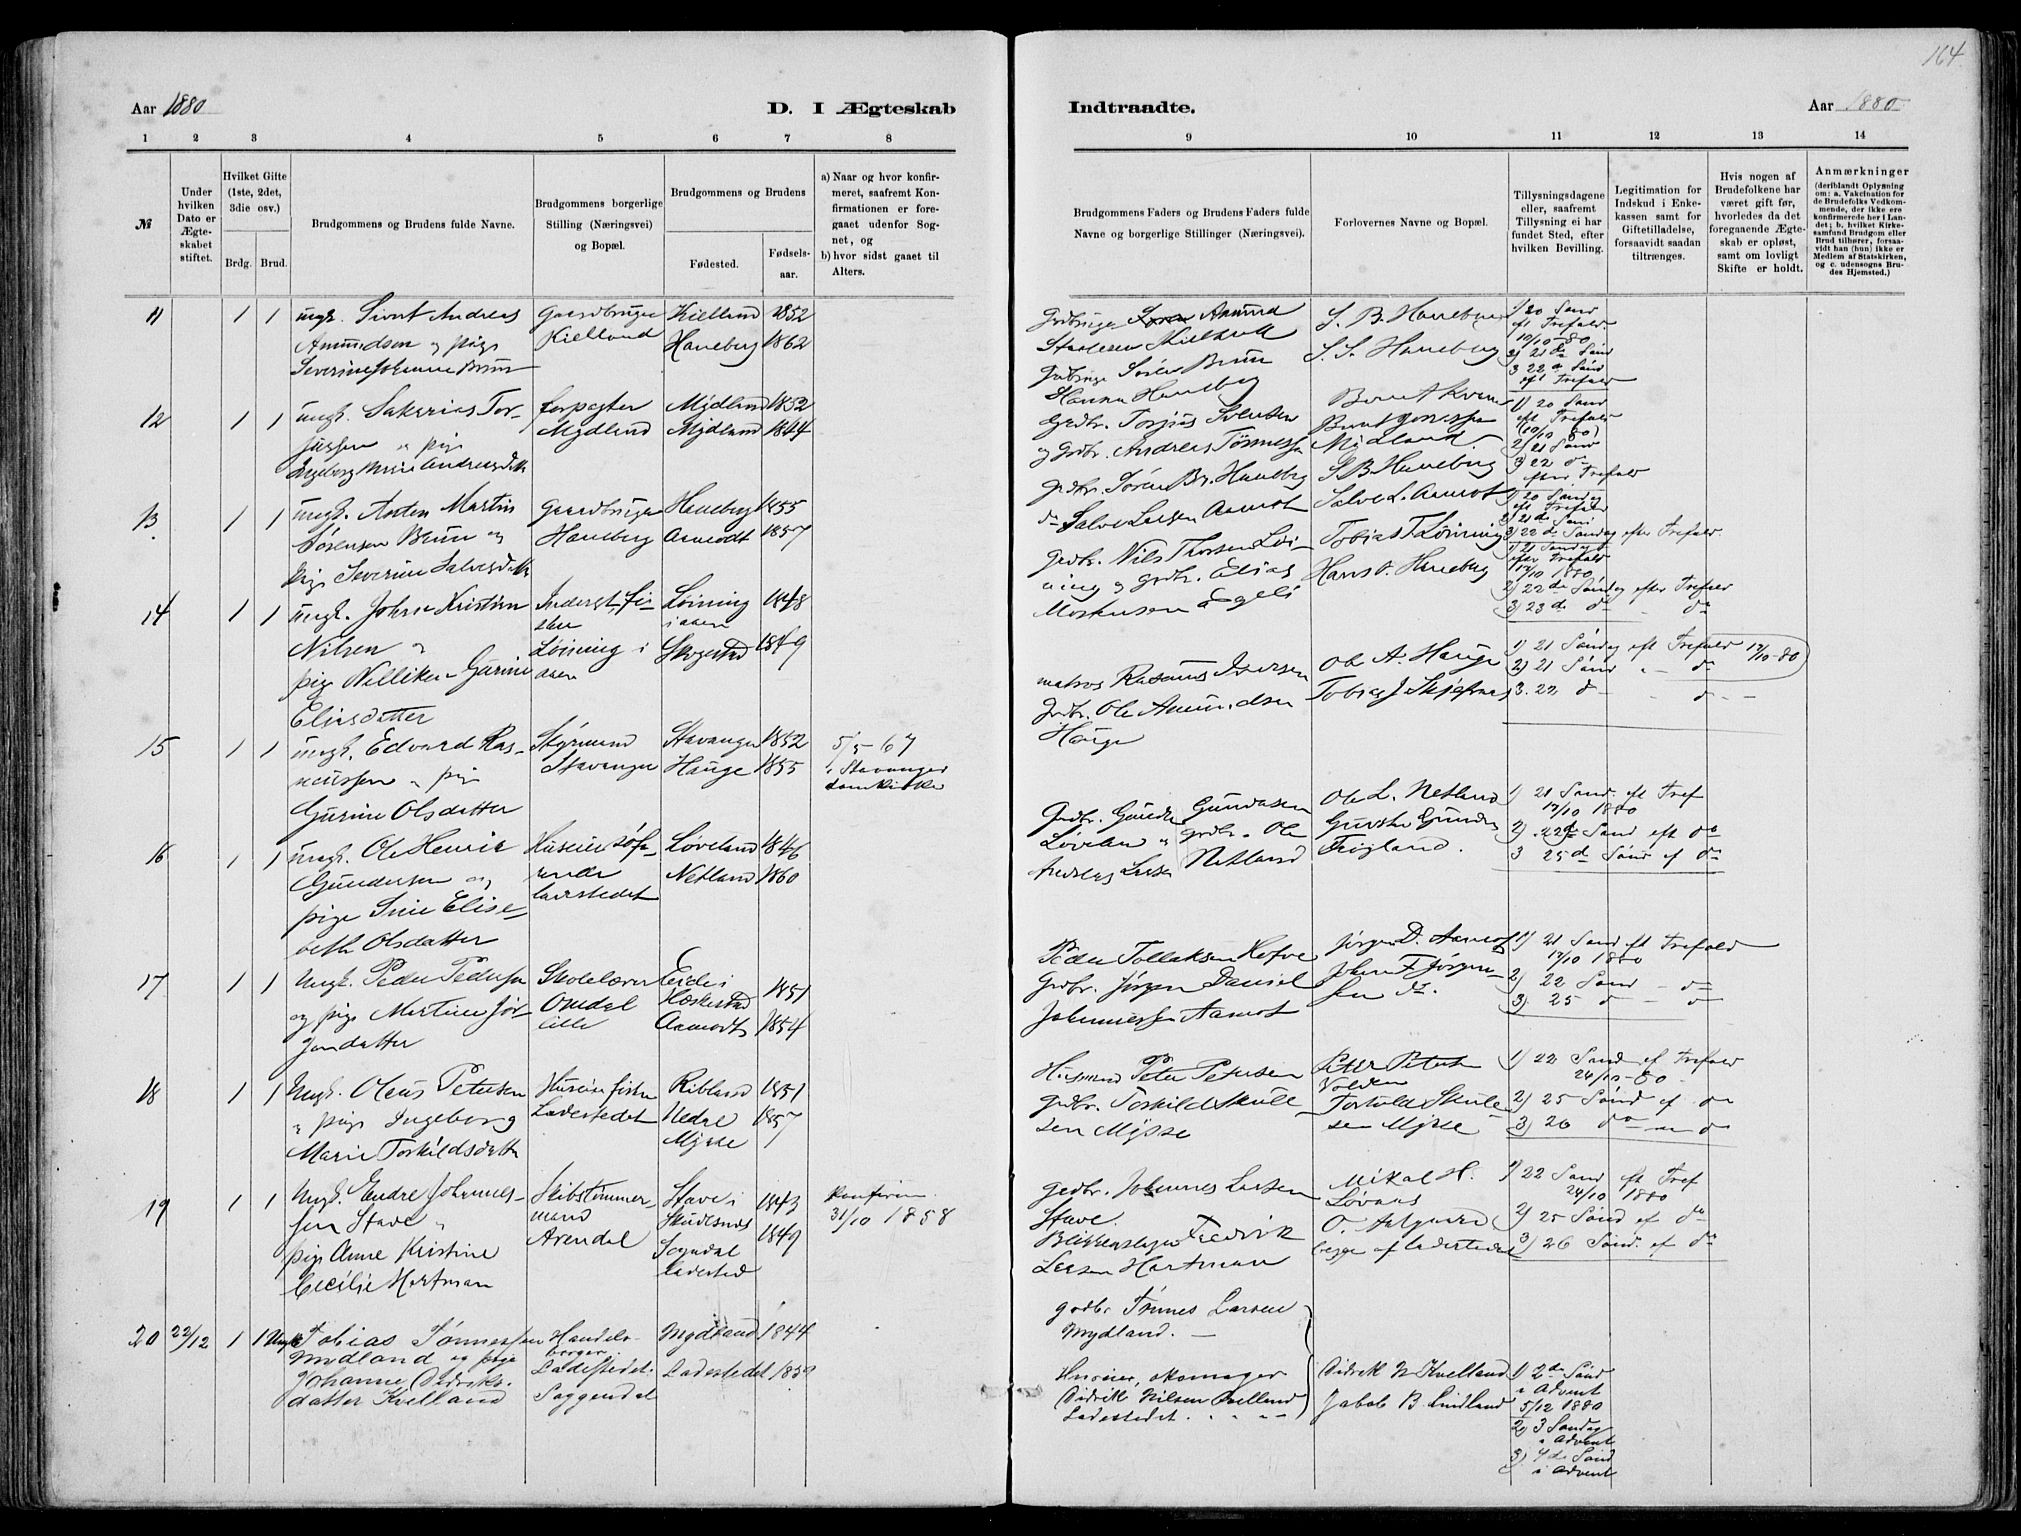 164.
Aar 1880
D. I Ægteskab
Indtraadte.
Aar 1880
1 2 3 4 5 6 7 8
9 10 11 12 13 14
№
Under hvilken Dato er Ægteskabet stiftet.
Hvilket Gifte (1ste, 2det, 3die osv.)
Brdg. Brud.
Brudgommens og Brudens fulde Navne.
Brudgommens borgerlige Stilling (Næringsvei) og Bopæl.
Brudgommens og Brudens
Fødested. Fødselsaar.
a) Naar og hvor konfirmeret, saafremt Konfirmationen er foregaaet udenfor Sognet, og
b) hvor sidst gaaet til Alters.
Brudgommens Faders og Brudens Faders fulde Navne og borgerlige Stillinger (Næringsvei).
Forlovernes Navne og Bopæl.
Tillysningsdagene eller, saafremt Tillysning ei har fundet Sted, efter hvilken Bevilling.
Legitimation for Indskud i Enkekassen samt for Giftetilladelse, forsaavidt saadan tiltrænges.
Hvis nogen af Brudefolkene har været gift før, hvorledes da det foregaaende Ægteskab er opløst, samt om lovligt Skifte er holdt.
Anmærkninger
(deriblandt Oplysning om: a. Vakcination for de Brudefolks Vedkommende, der ikke ere konfirmerede her i Landet; b. hvilket Kirkesamfund Brudgom eller Brud tilhører, forsaavidt han (hun) ikke er Medlem af Statskirken, og c. udensogns Brudes Hjemsted.)
11 1 1 ungk. Sivert Andreas Gaardbruger Kielland 1852
Amundsen og pige Kielland Haneberg 1862
Severine Johanne Bruun
12 1 1 ungk. Sakarias Tor- forpagter Mydland 1852
jussen og pige Mydland Mydland 1844
Ingeborg Marie Andreasdtr
13. 1 1 ungk. Anton Martin Gaardbruger Haneberg 1855
Sørensen Bruun og Haneberg Aamodt 1857
pige Severine Salvesdtr
14 1 1 ungk. Johan Kristian Løining 1848
Nilsen i aaen
Løining i Skogestad 1849
pige Gurine aaen
Eliasdatter
15 1 1 ungk. Edvard Ras- Styrmand Stavanger 1852 5/5 67
mussen og pige Stavanger Hauge 1855 i Stavanger
Gurine Olsdatter domkirke
16 1 1 ungk. Ole Henrik Løveland 1846
Gundersen og Netland 1860
pige Sine Elise- ladestedet
beth Olsdatter
17 1 1 Ungk. Peder Pedersen Skolelærer Eide i 1851
og pige Martine Jør- Omdal Hæskestad
gendatter lille Aamodt 1854
18 1 1 Ungk. Oleus Petersen Ribland 1851
og pige Ingeborg Ladestedet Nedre 1857
Marie Torkildsdatter Mysse
19 1 1 Ungk. Endre Johannes- Skibstømmer- Stave i 1843 konfirm.
sen Stave og mand Skudesnæs 31/10 1858
pige Anne Kristine Arendal Sogndal 1849
Cecilie Hartman ladested
20 22/12 1 1 Ungk. Tobias Tønnessen Handels- Mydland 1844
Mydland og pige borger
Johanne Didriks- Ladestedet Ladestedet
datter Kvelland Soggendal
Grdbruger Amund S. B. Haneberg 1) 20 Sønd
eft Trefold.
10/10-80
Gdbruger Søren Bruun S. S. Haneberg 2) 21 de Sønd
Haneberg 3 22 de Sønd
eft Trefold
Grdbr. Torjus Svensen 1) 20 Sønd
eft Trefold
og Gdbr. Andreas Tønnessen Mydland. (10/10 80)
2) 21 Sønd
3) 22 do
efter Trefold
Grdbr. Søren Br. Haneberg S B Haneberg 1) 20 Søndag
do Salve Larsen Aamot Salve L. Aamot eft Trefold
2) 21 de Sønd
3) 22 de Søndag efter Trefold.
Grdbr. Nils Thorsen Løi- Tobias T. Løining 1) 21 Søndag
ning og grdbr. Elias Hans S. Haneberg efter Trefold
17/10 1880
2) 22 de Søndag efter Trefold
3) 23 de do do
matros Rasmus Iversen Ole A. Hauge 1) 21 Søndag eft Trefold 17/10-80
Grdbr. Ole Amundsen Tobias J. 2) 21 Sønd do
Hauge 3. 22 do do
Grdbr. Gunder Gundersen Ole L. Netland 1) 21 Sønd. eft Tref
17/10 1880
Løveland og grdbr. Ole 2) 22 de Sønd eft do
Andreas Larsen Netland Frøyland. 3 25 de Sønd ef do
Peder Tollaksen Jørgen D. Aamot 1) 21 Sønd eft Trefold
17/10 1880
Grdbr. Jørgen Daniel Johan F Jørgen- 2) 22 Sønd do
Johannessen Aamot sen do. 3) 25 do do
Husmand Peter Petersen Peter Petersen 1) 22 Sønd ef Trefold
24/10-80
Grdbr. Torkild Skule- Torkild Skule- 2) 25 Sønd ef do
sen Mysse sen Mysse 3) 26 do do
Grdbr. Johannes Larsen Mikal H. 1) 22 Sønd eft Tref
Stave. Løvaas 24/10 1880
Blikkenslager Fredrik O. Aalgaard 2) 25 Sønd ef do
Larsen Hartman begge af ladestedet 3) 26 Sønd. ef do
Grdbr Tønnes Larsen
Mydland.
Didrik N Kvelland 1) 2 de Sønd
i Advent
Didrik Nilsen Kvelland Jakob B. Lindland 5/12 1880
Ladestedet 2) 3 Søndag
i Advent
3) 4 de Sønd
i Advent